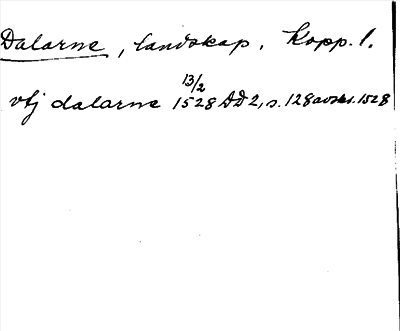 Dalarne, landskap. Kopp. l.
13/2
vtj dalarne 1528 DD 2, s. 128 avskr. 1528